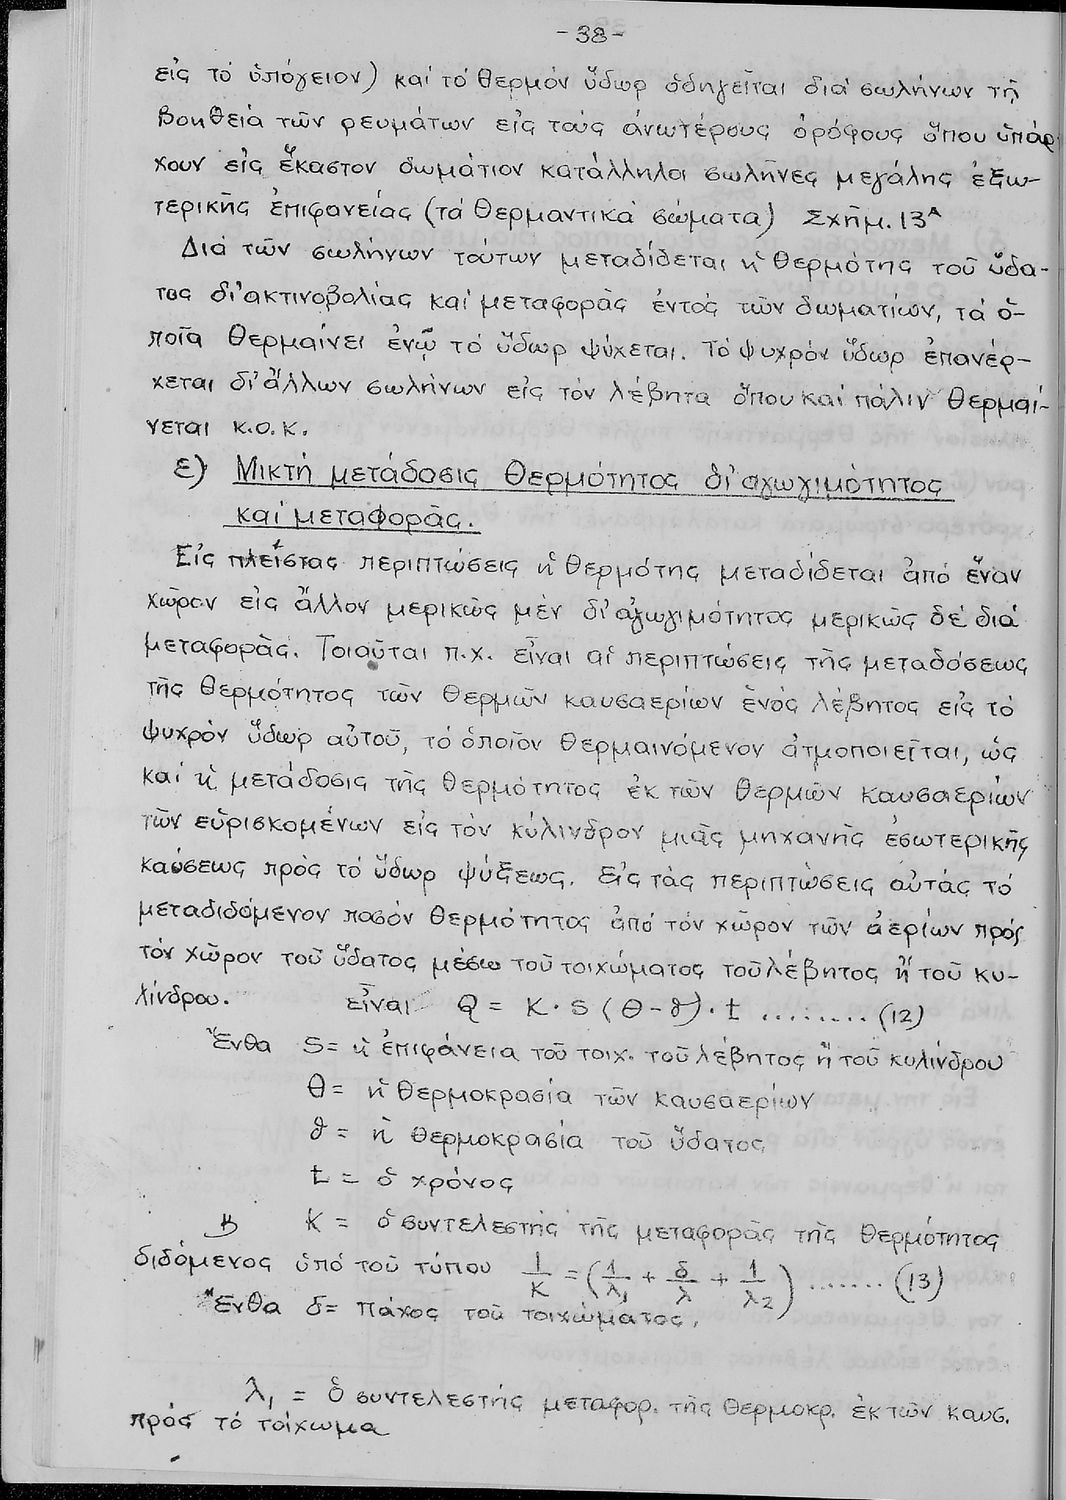 -38-
εἰς τό ὑπόγειον) καί τό θερμόν ὕδωρ ὁδηγεῖται διά σωλήνων τῇ
βοηθείᾳ τῶν ρευμάτων εἰς τούς ἀνωτέρους ὀρόφους ὅπου ὑπάρ-
χουν εἰς ἕκαστον δωμάτιον κατάλληλοι σωλῆνες μεγάλης ἐξω-
τερικῆς ἐπιφανείας (τά θερμαντικά σώματα) Σχῆμ. 13ᴬ
Διά τῶν σωλήνων τούτων μεταδίδεται ἡ θερμότης τοῦ ὕδα-
τος δι' ἀκτινοβολίας καί μεταφορᾶς ἐντός τῶν δωματίων, τά ὁ-
ποῖα θερμαίνει ἐνῷ τό ὕδωρ ψύχεται. Τό ψυχρόν ὕδωρ ἐπανέρ-
χεται δι' ἄλλων σωλήνων εἰς τόν λέβητα ὅπου καί πάλιν θερμαί-
νεται κ.ο.κ.
ε) Μικτή μετάδοσις θερμότητος δι' αγωγιμότητος
καί μεταφορᾶς.
Εἰς πλείστας περιπτώσεις ἡ θερμότης μεταδίδεται ἀπό ἕναν
χῶρον εἰς ἄλλον μερικῶς μέν δι' ἀγωγιμότητος μερικῶς δέ διά
μεταφορᾶς. Τοιαῦται π.χ. εἶναι αἱ περιπτώσεις τῆς μεταδόσεως
τῆς θερμότητος τῶν θερμῶν καυσαερίων ἑνός λέβητος εἰς τό
ψυχρόν ὕδωρ αὐτοῦ, τό ὁποῖον θερμαινόμενον ἀτμοποιεῖται, ὡς
καί ἡ μετάδοσις τῆς θερμότητος ἐκ τῶν θερμῶν καυσαερίων
τῶν εὑρισκομένων εἰς τόν κύλινδρον μιᾶς μηχανῆς ἐσωτερικῆς
καύσεως πρὸς τό ὕδωρ ψύξεως. Εἰς τάς περιπτώσεις αὐτάς τό
μεταδιδόμενον ποσόν θερμότητος ἀπό τόν χῶρον τῶν ἀερίων πρός
τόν χῶρον τοῦ ὕδατος μέσω τοῦ τοιχώματος τοῦ λέβητος ἤ τοῦ κυ-
λίνδρου. εἶναι Q = K · S (Θ - ϑ) · t ........ (12)
Ἔνθα S = ἡ ἐπιφάνεια τοῦ τοιχ. τοῦ λέβητος ἤ τοῦ κυλίνδρου
Θ = ἡ θερμοκρασία τῶν καυσαερίων
ϑ = ἡ θερμοκρασία τοῦ ὕδατος
t = ὁ χρόνος
K = ὁ συντελεστής τῆς μεταφορᾶς τῆς θερμότητος
διδόμενος ὑπό τοῦ τύπου 1/K = (1/λ₁ + δ/λ + 1/λ₂) ....... (13)
Ἔνθα δ = πάχος τοῦ τοιχώματος,
λ₁ = ὁ συντελεστής μεταφορ. τῆς θερμοκρ. ἐκ τῶν καυσ.
πρός τό τοίχωμα